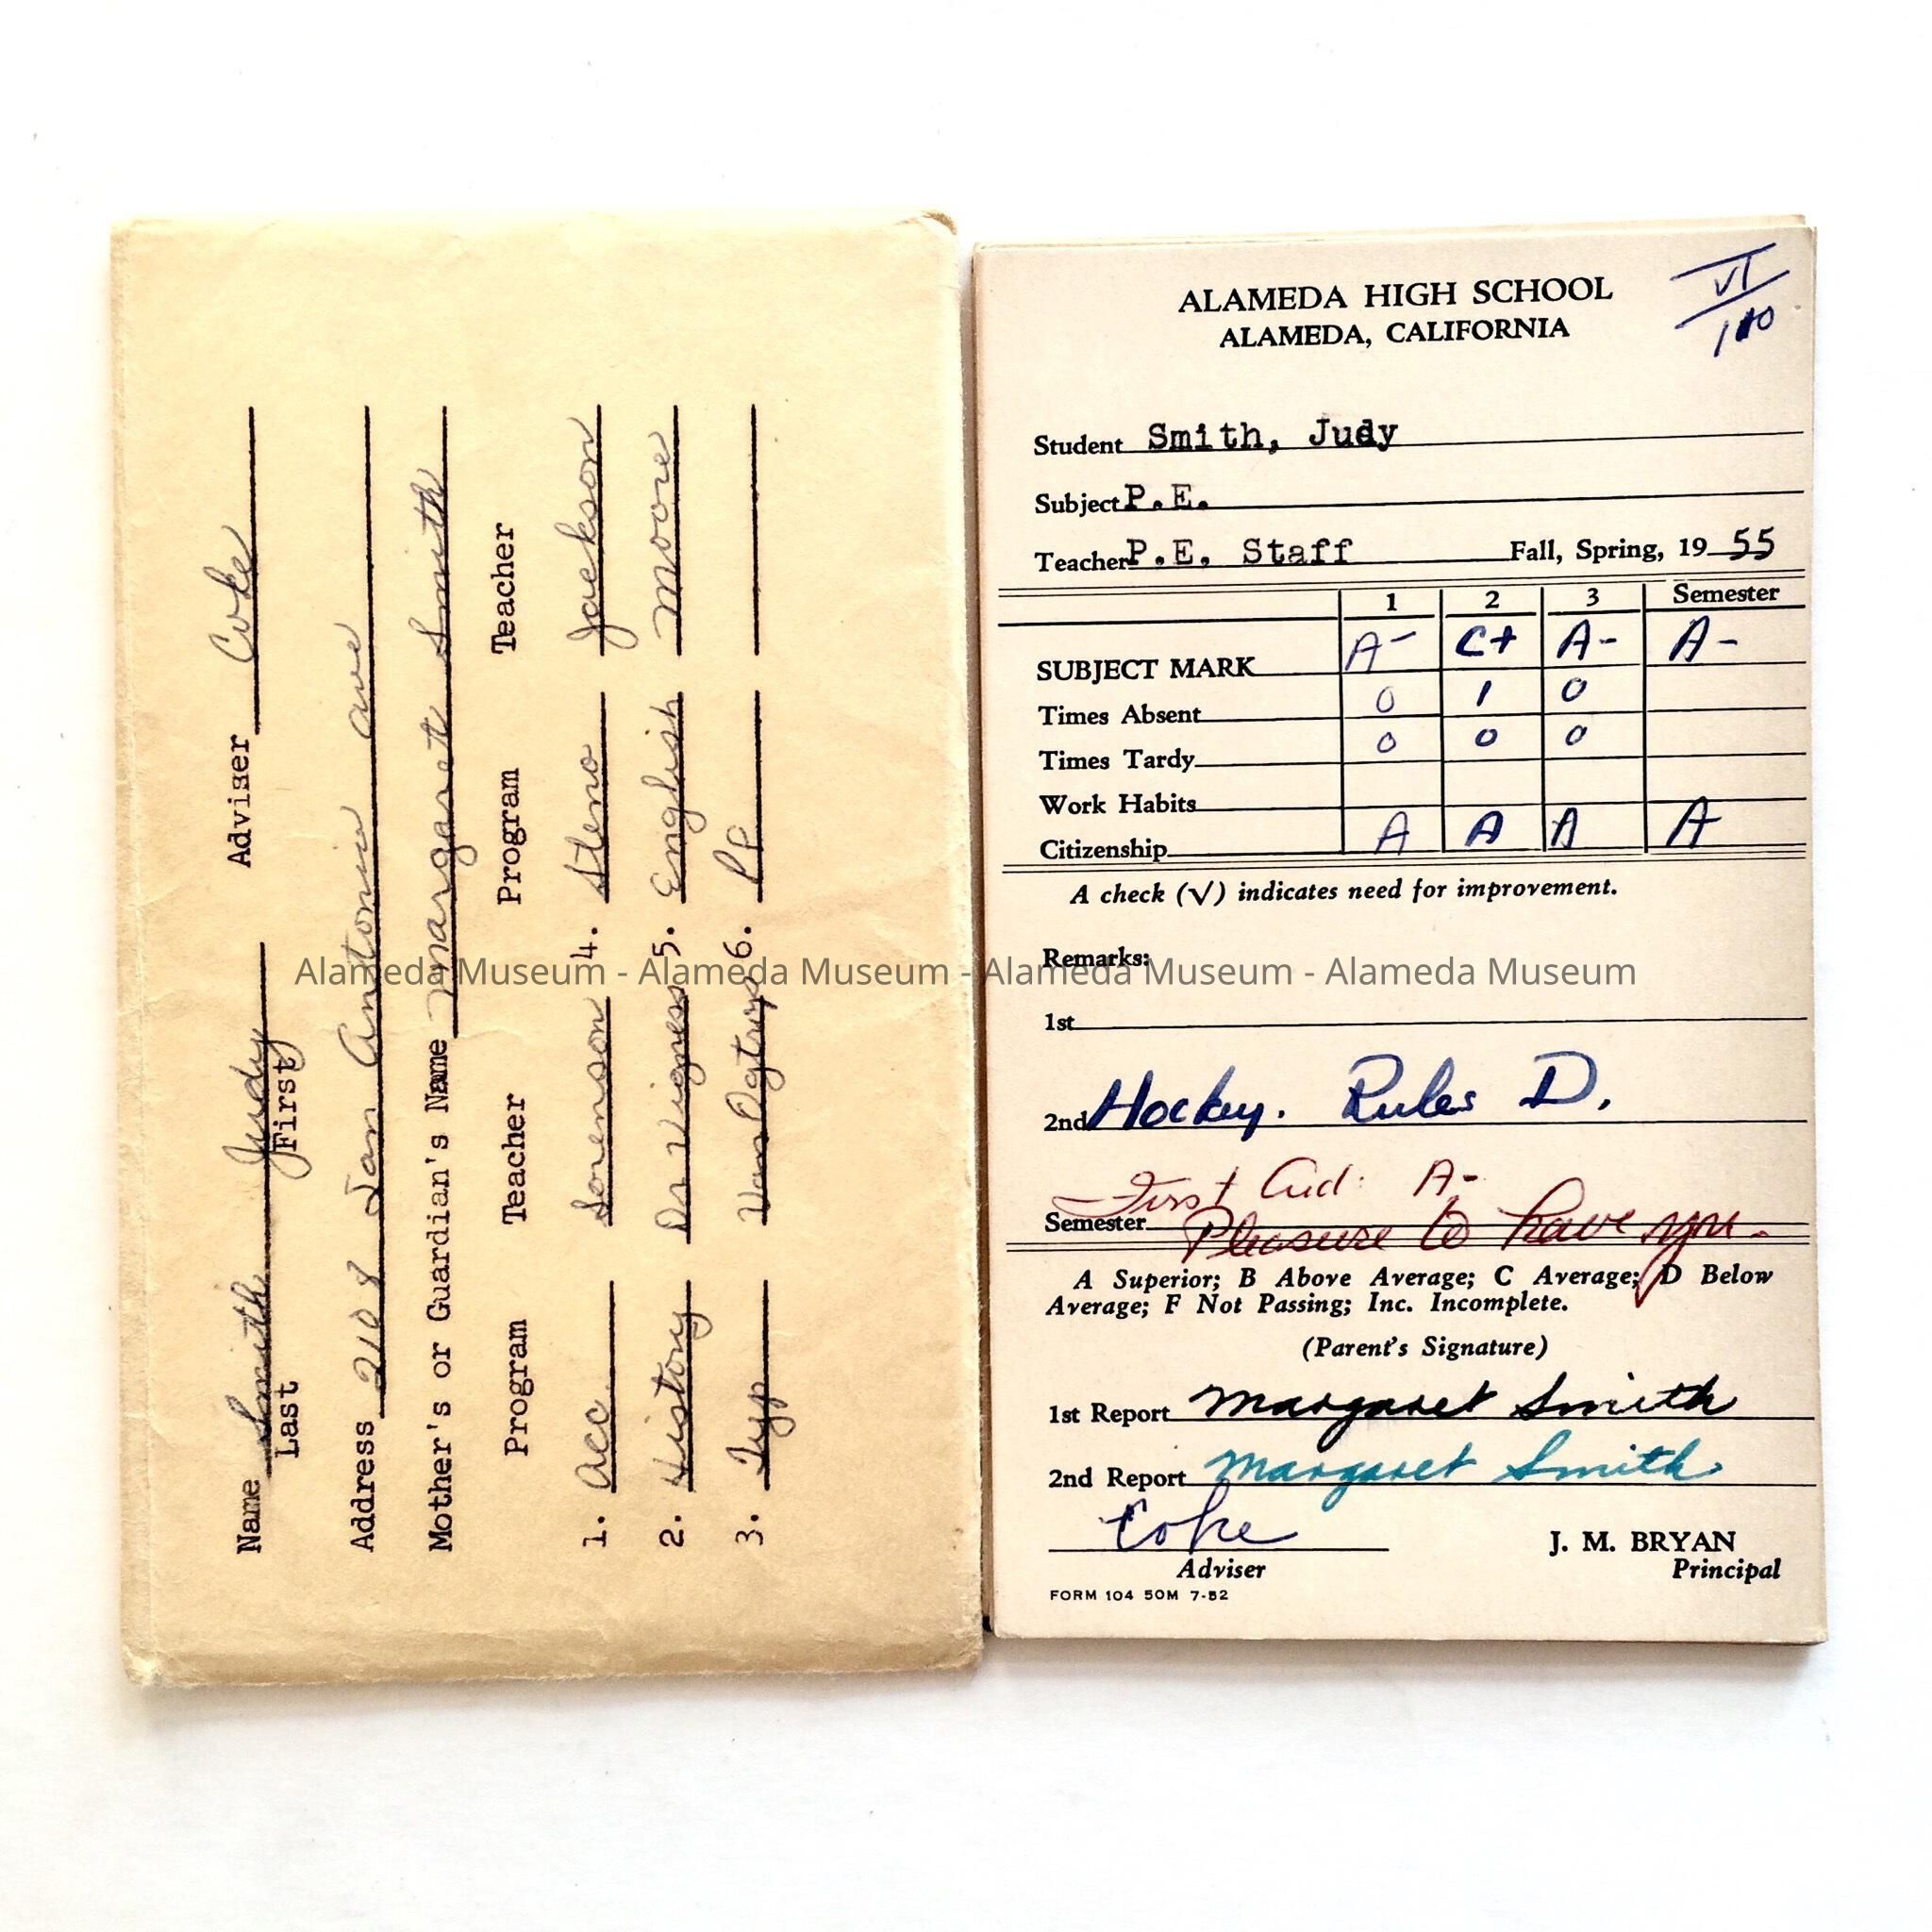 Name Smith Judy Adviser Coke
Last First
Address 2108 San Antonio ave
Mother's or Guardian's Name Margaret Smith
Program Teacher Program Teacher
1. Acc Sorenson 4. Steno Jackson
2. History Des Vignes 5. English Moore
3. Typ Van Ogtrop 6. PP
ALAMEDA HIGH SCHOOL
ALAMEDA, CALIFORNIA
VI
Student Smith, Judy
Subject P.E.
Teacher P.E. Staff Fall, Spring, 19 55
1 2 3 Semester
SUBJECT MARK A- C+ A- A-
Times Absent 0 1 0
Times Tardy 0 0 0
Work Habits
Citizenship A A A A
A check (√) indicates need for improvement.
Alameda Museum - Alameda Museum - Alameda Museum - Alameda Museum
Remarks:
1st
2nd Hockey. Rules D.
First Aid: A-
Semester Pleasure to have you.
A Superior; B Above Average; C Average; D Below
Average; F Not Passing; Inc. Incomplete.
(Parent's Signature)
1st Report Margaret Smith
2nd Report Margaret Smith
Coke
Adviser
J. M. BRYAN
Principal
FORM 104 50M 7-52